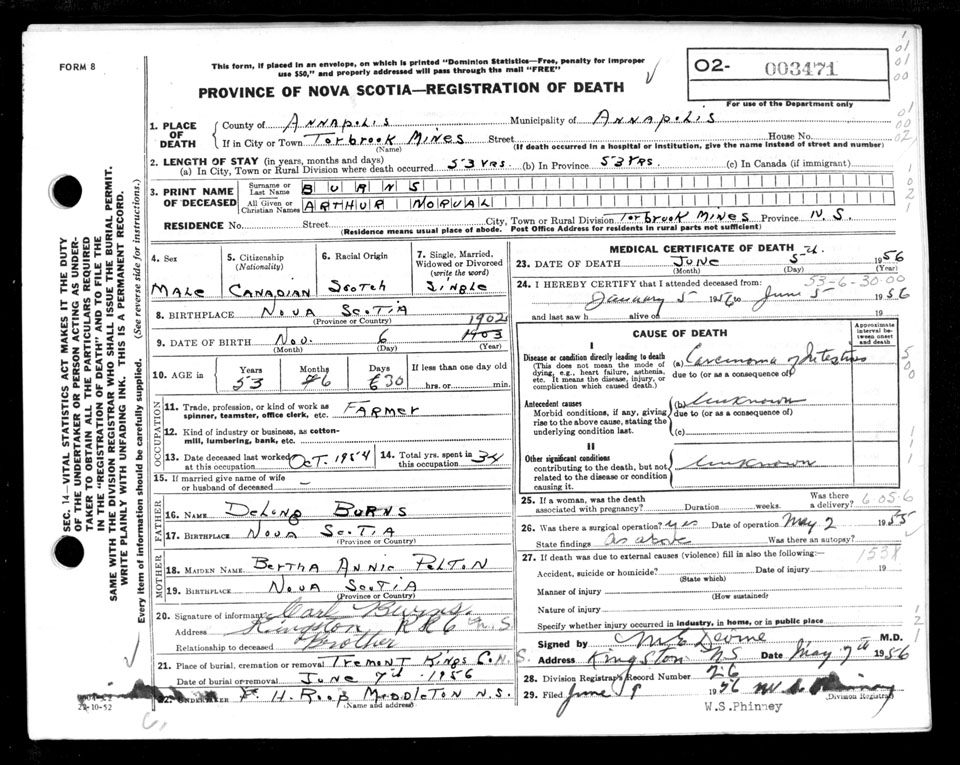 FORM 8
This form, if placed in an envelope, on which is printed "Dominion Statistics—Free, penalty for improper
use $50," and properly addressed will pass through the mail "FREE"
O2- 003471
For use of the Department only
PROVINCE OF NOVA SCOTIA—REGISTRATION OF DEATH
1. PLACE OF DEATH County of Annapolis Municipality of Annapolis
If in City or Town Torbrook Mines Street House No.
(Name) (If death occurred in a hospital or institution, give the name instead of street and number)
2. LENGTH OF STAY (in years, months and days)
(a) In City, Town or Rural Division where death occurred 53 yrs. (b) In Province 53 yrs. (c) In Canada (if immigrant)
3. PRINT NAME OF DECEASED Surname or Last Name BURNS
All Given or Christian Names ARTHUR NORVAL
RESIDENCE No. Street City, Town or Rural Division Torbrook Mines Province N.S.
(Residence means usual place of abode. Post Office Address for residents in rural parts not sufficient)
4. Sex Male
5. Citizenship (Nationality) Canadian
6. Racial Origin Scotch
7. Single, Married, Widowed or Divorced (write the word) Single
8. BIRTHPLACE Nova Scotia
(Province or Country)
9. DATE OF BIRTH Nov. 6 1903 1902
(Month) (Day) (Year)
10. AGE in Years Months Days If less than one day old
53 6 30 hrs. or min.
OCCUPATION
11. Trade, profession, or kind of work as spinner, teamster, office clerk, etc. Farmer
12. Kind of industry or business, as cotton-mill, lumbering, bank, etc.
13. Date deceased last worked at this occupation Oct. 1954 14. Total yrs. spent in this occupation 34
15. If married give name of wife or husband of deceased –
FATHER
16. NAME DeLong Burns
17. BIRTHPLACE Nova Scotia
(Province or Country)
MOTHER
18. MAIDEN NAME Bertha Annie Pelton
19. BIRTHPLACE Nova Scotia
(Province or Country)
20. Signature of informant Carl Burns
Address Kingston RR6 N.S
Relationship to deceased Brother
21. Place of burial, cremation or removal Tremont Kings Co. N.S.
Date of burial or removal June 7th 1956
22. UNDERTAKER H. Roop Middleton N.S.
(Name and address)
22-10-52
MEDICAL CERTIFICATE OF DEATH
23. DATE OF DEATH June 5th 1956
(Month) (Day) (Year)
24. I HEREBY CERTIFY that I attended deceased from: 53-6-30-00
January 5 1956 to June 5 1956
and last saw h alive on 19
CAUSE OF DEATH
Approximate interval between onset and death
I
Disease or condition directly leading to death (a) Carcinoma of Intestines
(This does not mean the mode of dying, e.g., heart failure, asthenia, etc. It means the disease, injury, or complication which caused death.)
due to (or as a consequence of)
Antecedent causes (b) Unknown
Morbid conditions, if any, giving rise to the above cause, stating the underlying condition last.
due to (or as a consequence of)
(c)
II
Other significant conditions contributing to the death, but not related to the disease or condition causing it. Unknown
25. If a woman, was the death associated with pregnancy? Duration weeks. Was there a delivery? 605.6
26. Was there surgical operation? yes Date of operation May 2 1955
State findings As above Was there an autopsy?
27. If death was due to external causes (violence) fill in also the following: 1538
Accident, suicide or homicide? Date of injury 19
(State which)
Manner of injury
(How sustained)
Nature of injury
Specify whether injury occurred in industry, in home, or in public place
Signed by M E Devine M.D.
Address Kingston NS Date May 7th 1956
28. Division Registrar's Record Number 26
29. Filed June 8 1956
Division Registrar
W.S.Phinney
SEC. 14—VITAL STATISTICS ACT MAKES IT THE DUTY
OF THE UNDERTAKER OR PERSON ACTING AS UNDER-
TAKER TO OBTAIN ALL THE PARTICULARS REQUIRED
IN THE "REGISTRATION OF DEATH" AND TO FILE THE
SAME WITH THE DIVISION REGISTRAR WHO SHALL ISSUE THE BURIAL PERMIT.
WRITE PLAINLY WITH UNFADING INK. THIS IS A PERMANENT RECORD.
Every item of information should be carefully supplied. (See reverse side for instructions.)